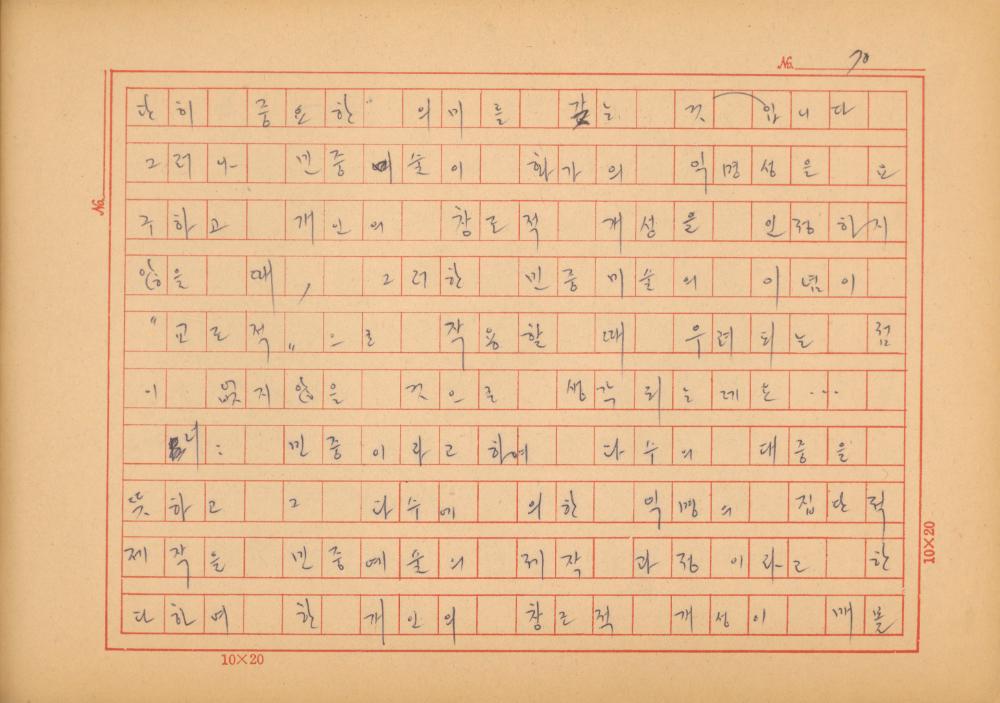 No. 70
단히 중요한 의미를 갖는 것입니다
그러나 민중예술이 화가의 익명성을 요
구하고 개인의 창조적 개성을 인정하지
않을 때, 그러한 민중미술의 이념이
"교조적"으로 작용할 때 우려되는 점
이 없지 않을 것으로 생각되는데는 ...
: 민중이라고 하여 다수의 대중을
뜻하고 그 다수에 의한 익명의 집단적
제작을 민중예술의 제작 과정이라고 한
다하며 한 개인의 창조적 개성이 매몰
No.
10×20
10×20